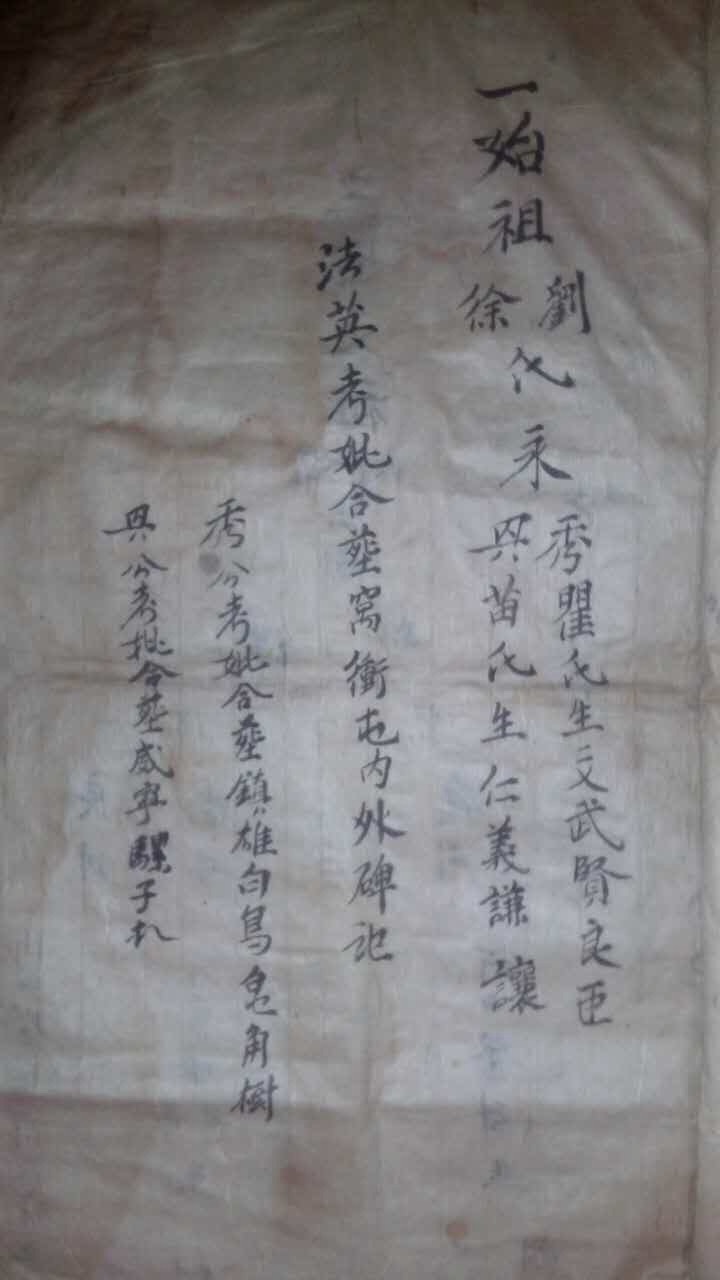 一始祖
劉
徐
氏
秀瞿氏生文武賢良臣
苗氏生仁義謙讓
法英考妣合塋窩衝屯内外碑記
秀公考妣合塋鎮雄白鳥皂角樹
公考妣合塋威寧騾子